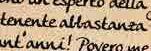 un esperto della
tenente abbastanza
ant'anni! Povero me